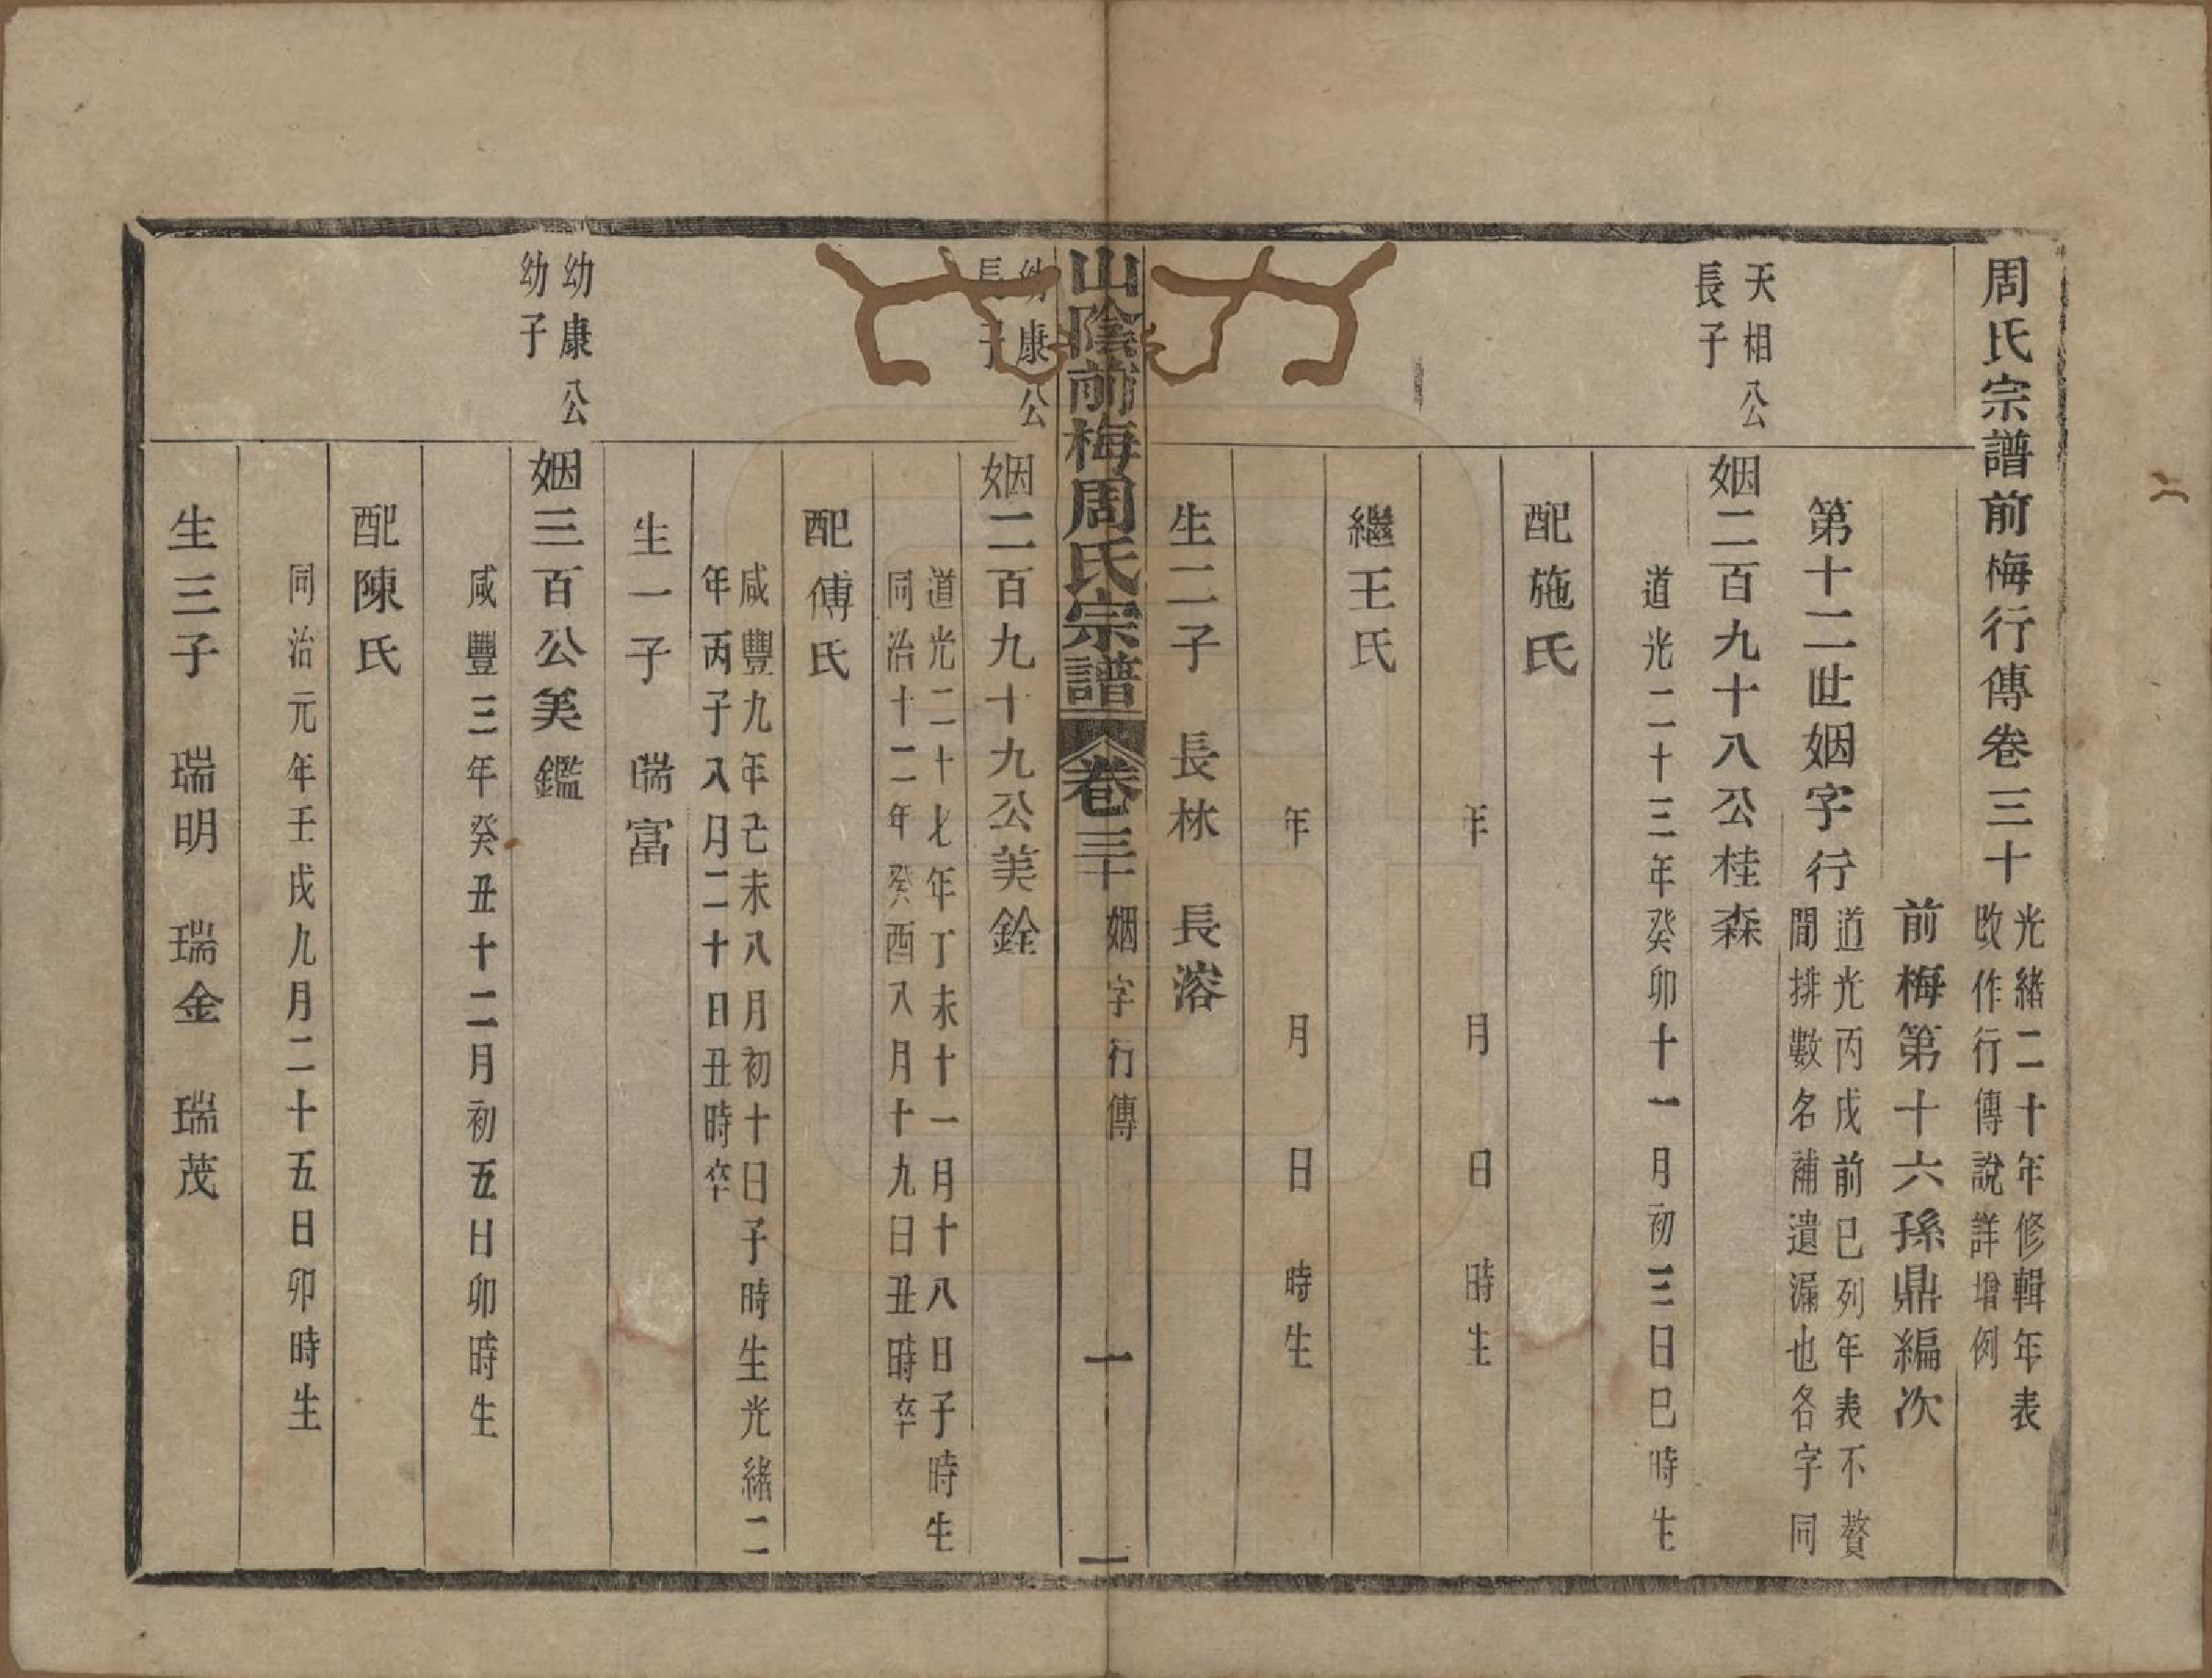 周氏宗譜前梅行傳卷三十
光緒二十年修輯年表
改作行傳說詳增例
前梅第十六孫鼎編次
第十二世姻字行
道光丙戌前已列年表不贅
間排數名補遺漏也各字同
天相公
長子
姻二百九十八公桂森
道光二十三年癸卯十一月初三日巳時生
配施氏
年 月 日 時生
繼王氏
年 月 日 時生
生二子 長林 長溶
山陰前梅周氏宗譜
卷三十
姻字行傳
一
幼康公
長子
姻二百九十九公美銓
道光二十七年丁未十一月十八日子時生
同治十二年癸酉八月十九日丑時卒
配傅氏
咸豐九年己未八月初十日子時生光緒二
年丙子八月二十日丑時卒
生一子 瑞富
幼康公
幼子
姻三百公美鑑
咸豐三年癸丑十二月初五日卯時生
配陳氏
同治元年壬戌九月二十五日卯時生
生三子 瑞明 瑞金 瑞茂